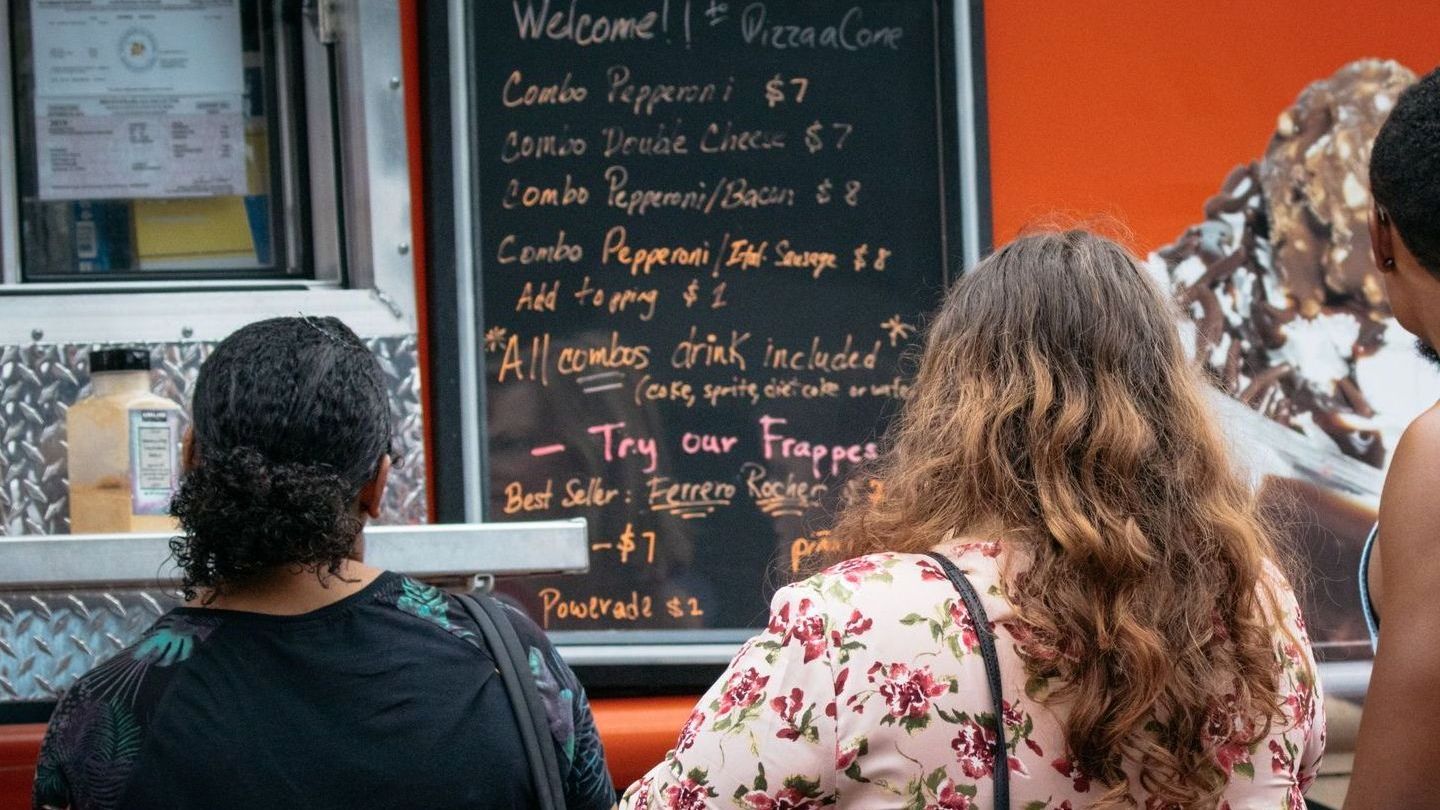 Welcome!! to Pizza a Cone
Combo Pepperoni $7
Combo Double Cheese $7
Combo Pepperoni/Bacon $8
Combo Pepperoni/Ital. Sausage $8
Add topping $1
*All combos drink included*
(coke, sprite, diet coke or
- Try our Frappes
Best Seller: Ferrero Rocher
-$7
Powerade $2